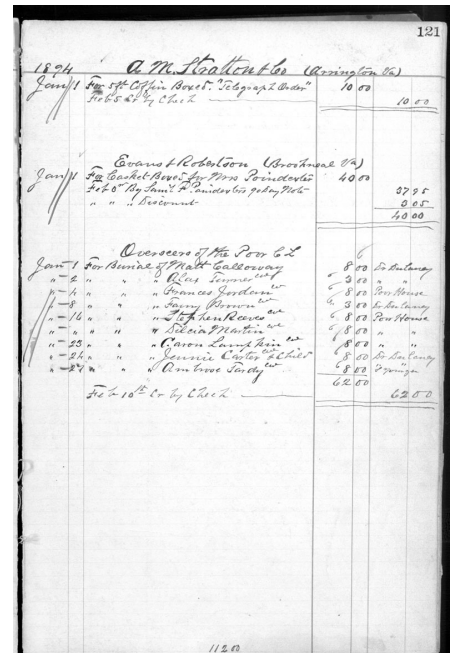 121
1894 A. M. Stratton & Co (Arrington Va)
Jany 1 For 5 ft Coffin Boxed. "Telegraph Order" 10 00
Feb 5 Cr by Check 10 00
Evans & Robertson (Brookneal Va)
Jany 1 For Casket Boxed for Mrs Poindexter 40 00
Feb By Saml F. Poindexters 90 day Note 37 95
" " " Discount 3 05
40 00
Overseers of the Poor C L
Jan 1 For Burial of Matt Calloway 8 00 Dr Dulaney
" 2 " " " Alex Turner 3 00 " "
" 4 " " " Frances Jordan 8 00 Poor House
" 8 " " " Fany Brown 3 00 Dr Dulaney
" 16 " " " Stephen Reeves 8 00 Poor House
" " " " " Delcia Martin 8 00 " "
" 23 " " " Aaron Lampkin 8 00 " "
" 24 " " " Jennie Carter & Child 8 00 Dr Dulaney
" " " " Ambrose Tardy 8 00
62 00
Feb 10th Cr by Check 62 00
112 00